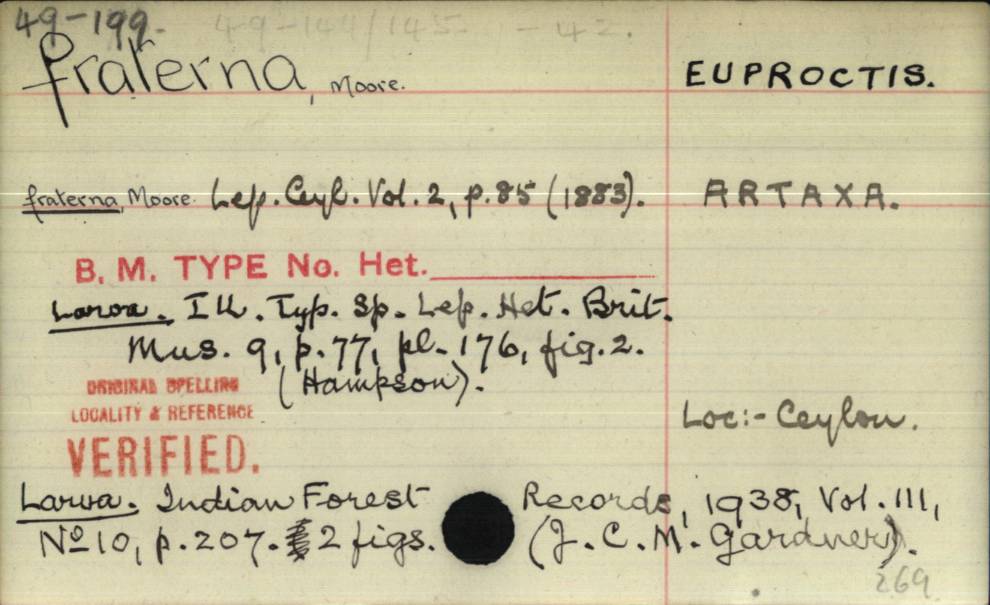 49-199. 49-144/145 - 42.
fraterna, Moore. EUPROCTIS.
fraterna, Moore. Lep. Ceyl. Vol. 2, p. 85 (1883). ARTAXA.
B. M. TYPE No. Het.
Larva. Ill. Typ. Sp. Lep. Het. Brit.
Mus. 9, p. 77, pl. 176, fig. 2.
(Hampson).
ORIGINAL SPELLING
LOCALITY & REFERENCE
VERIFIED.
Loc:- Ceylon.
Larva. Indian Forest Records, 1938, Vol. III,
No 10, p. 207. 2 figs. (J. C. M. Gardner).
269.